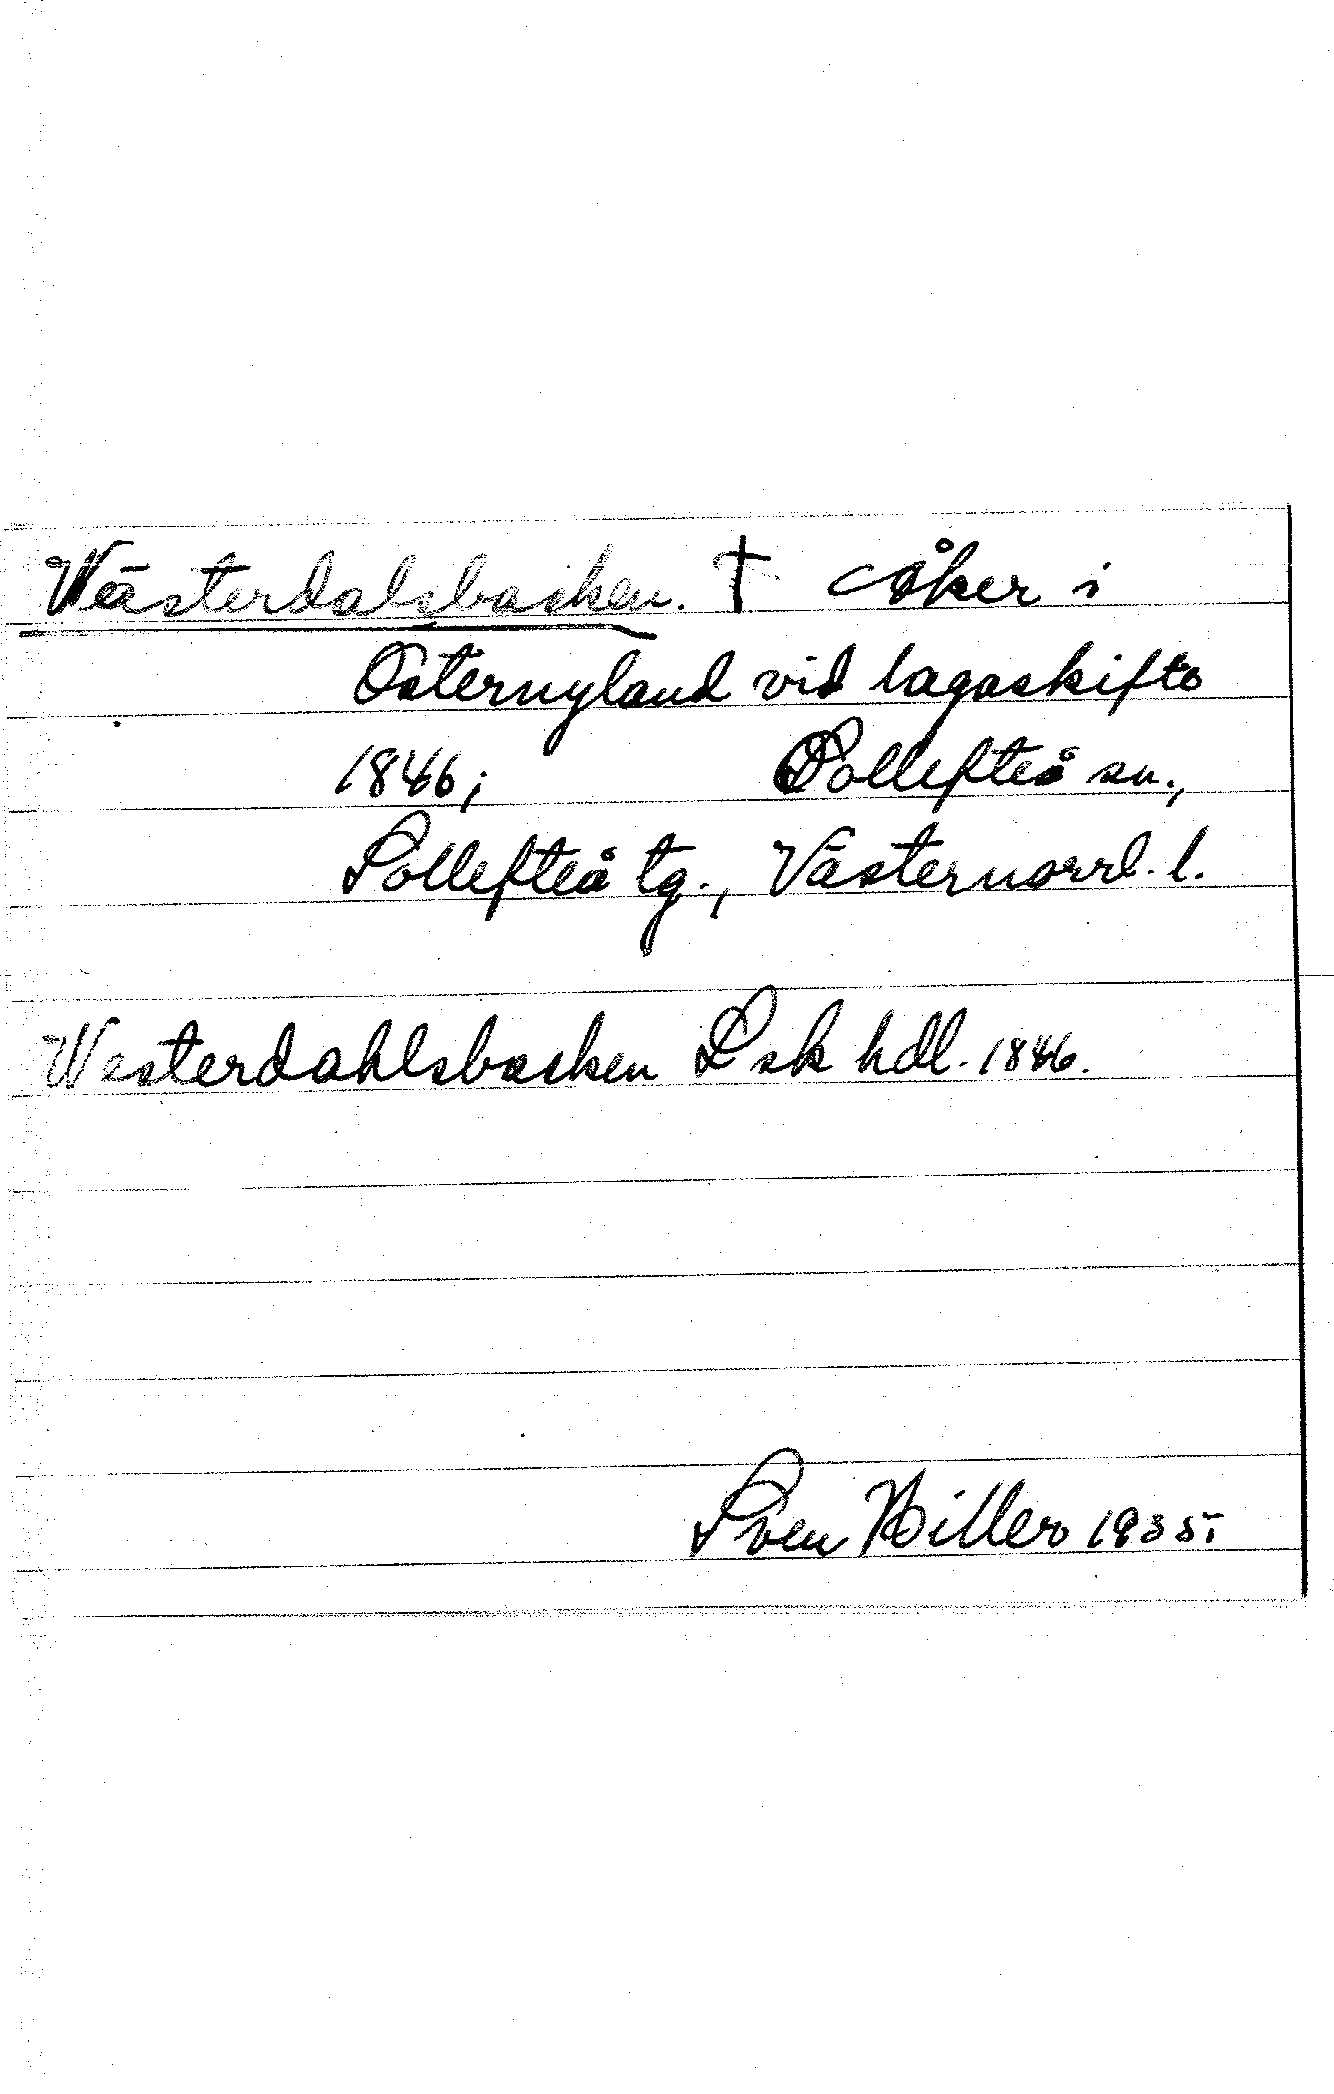 Västerdalsbacken. † Åker i
Östernyland vid lagaskifte
1846; Sollefteå sn.,
Sollefteå tg., Västernorrl. l.
Westerdahlsbacken Lsk hdl. 1846.
Sven Hiller 1935.